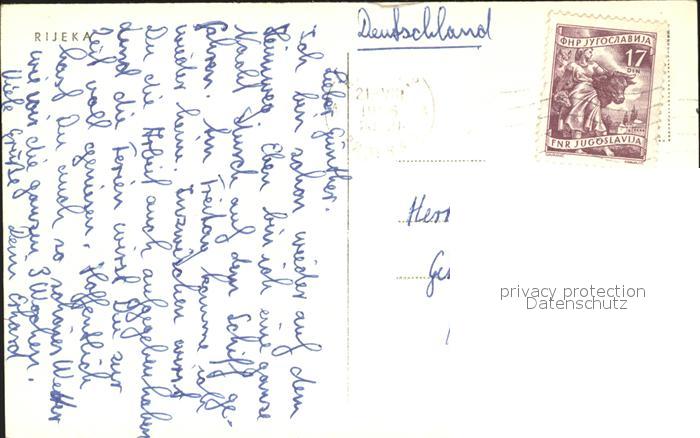 RIJEKA
Deutschland
ФНР ЈУГОСЛАВИЈА
17
DIN
FNR JUGOSLAVIJA
Lieber Günther.
Ich bin schon wieder auf dem
Heimweg. Eben bin ich eine ganze
Nacht durch auf dem Schiff ge-
fahren. Am Freitag komme ich
wieder heim. Inzwischen wirst
Du die Arbeit auch aufgegeben haben
und die Ferien wirst Du zur
Zeit voll geniesen. Hoffentlich
hast Du auch so schönes Wetter
wie wir die ganzen 3 Wochen.
Viele Grüße Dein Erhard
Herr
Ge
privacy protection
Datenschutz